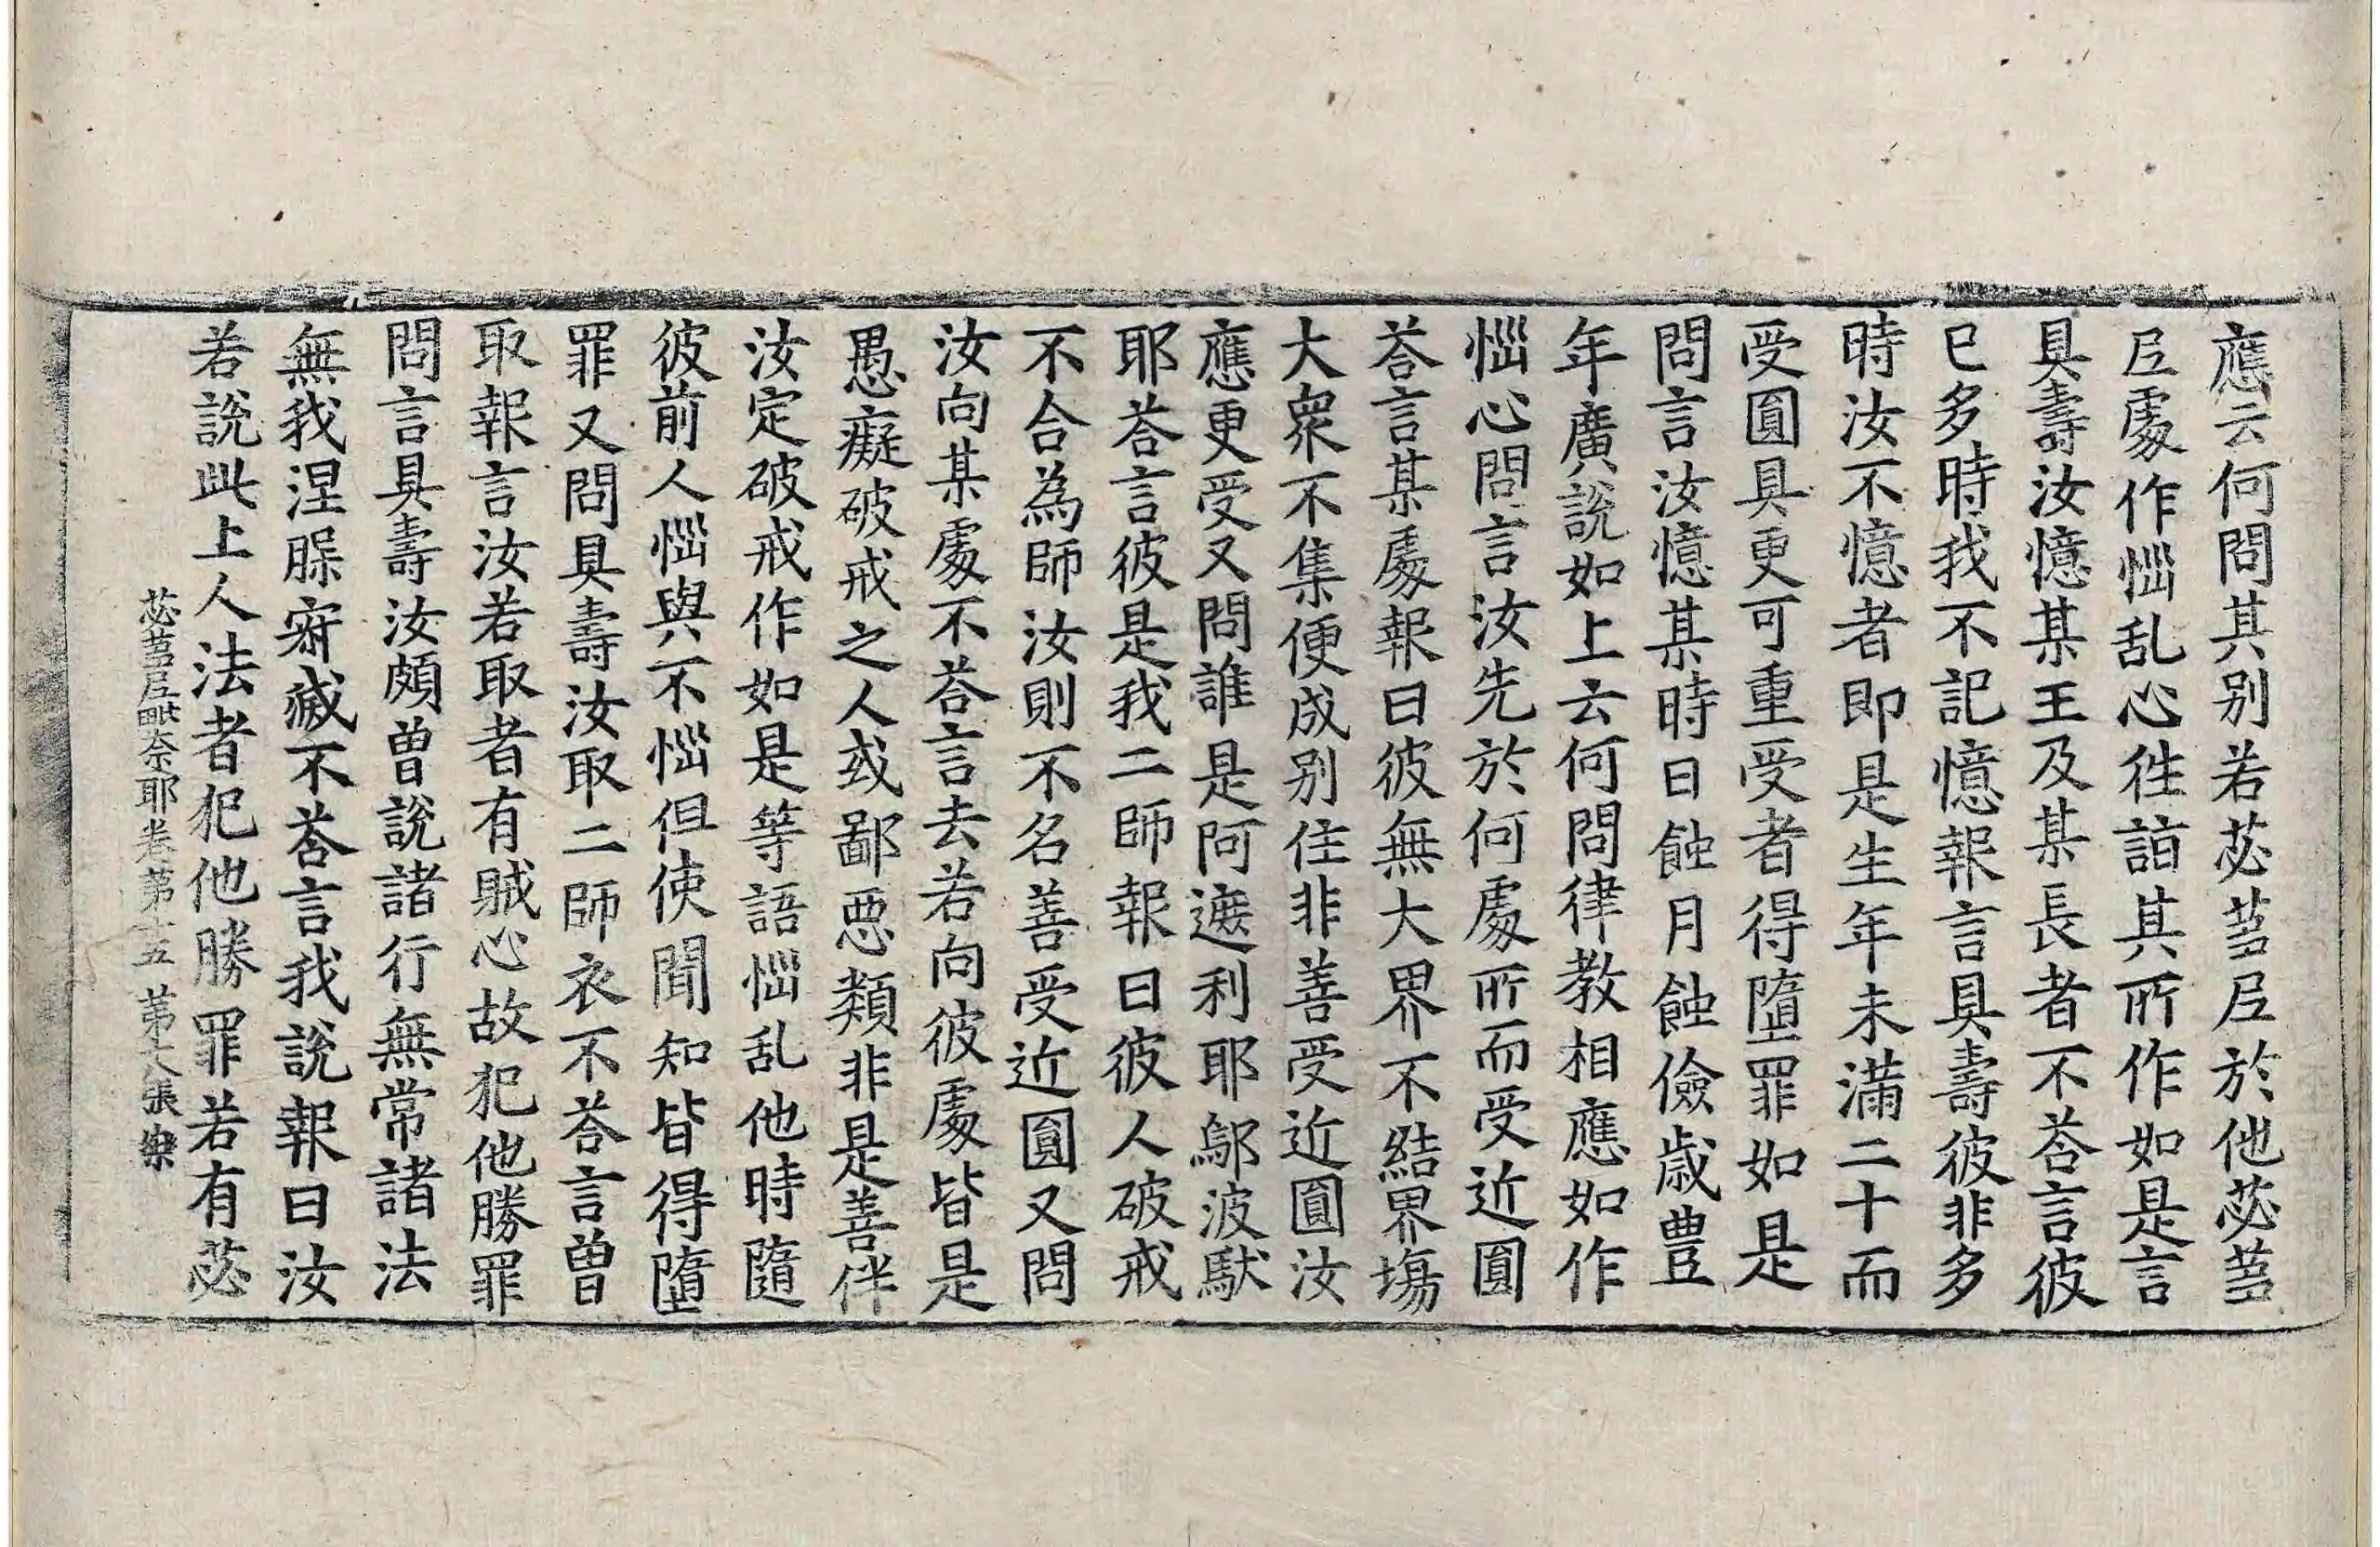 應云何問其别若苾蒭尼於他苾蒭
尼處作惱乱心徃詣其所作如是言
具壽汝憶某王及某長者不荅言彼
已多時我不記憶報言具壽彼非多
時汝不憶者即是生年未滿二十而
受圓具更可重受者得墮罪如是
問言汝憶某時日蝕月蝕儉歲豊
年廣說如上云何問律教相應如作
惱心問言汝先於何處所而受近圓
荅言某處報曰彼無大界不結界場
大衆不集便成别住非善受近圓汝
應更受又問誰是阿遮利耶鄔波馱
耶荅言彼是我二師報曰彼人破戒
不合為師汝則不名善受近圓又問
汝向某處不荅言去若向彼處皆是
愚癡破戒之人或鄙惡類非是善伴
汝定破戒作如是等語惱乱他時隨
彼前人惱與不惱但使聞知皆得墮
罪又問具壽汝取二師衣不荅言曾
取報言汝若取者有賊心故犯他勝罪
問言具壽汝頗曾說諸行無常諸法
無我涅槃寂滅不荅言我說報曰汝
若說此上人法者犯他勝罪若有苾
苾蒭尼毗奈耶卷第十五 第六張 樂